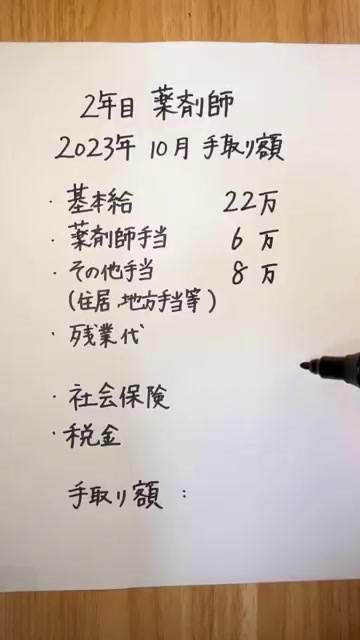 2年目 薬剤師
2023年 10月 手取り額
・基本給 22万
・薬剤師手当 6万
・その他手当 8万
(住居、地方手当等)
・残業代
・社会保険
・税金
手取り額 :